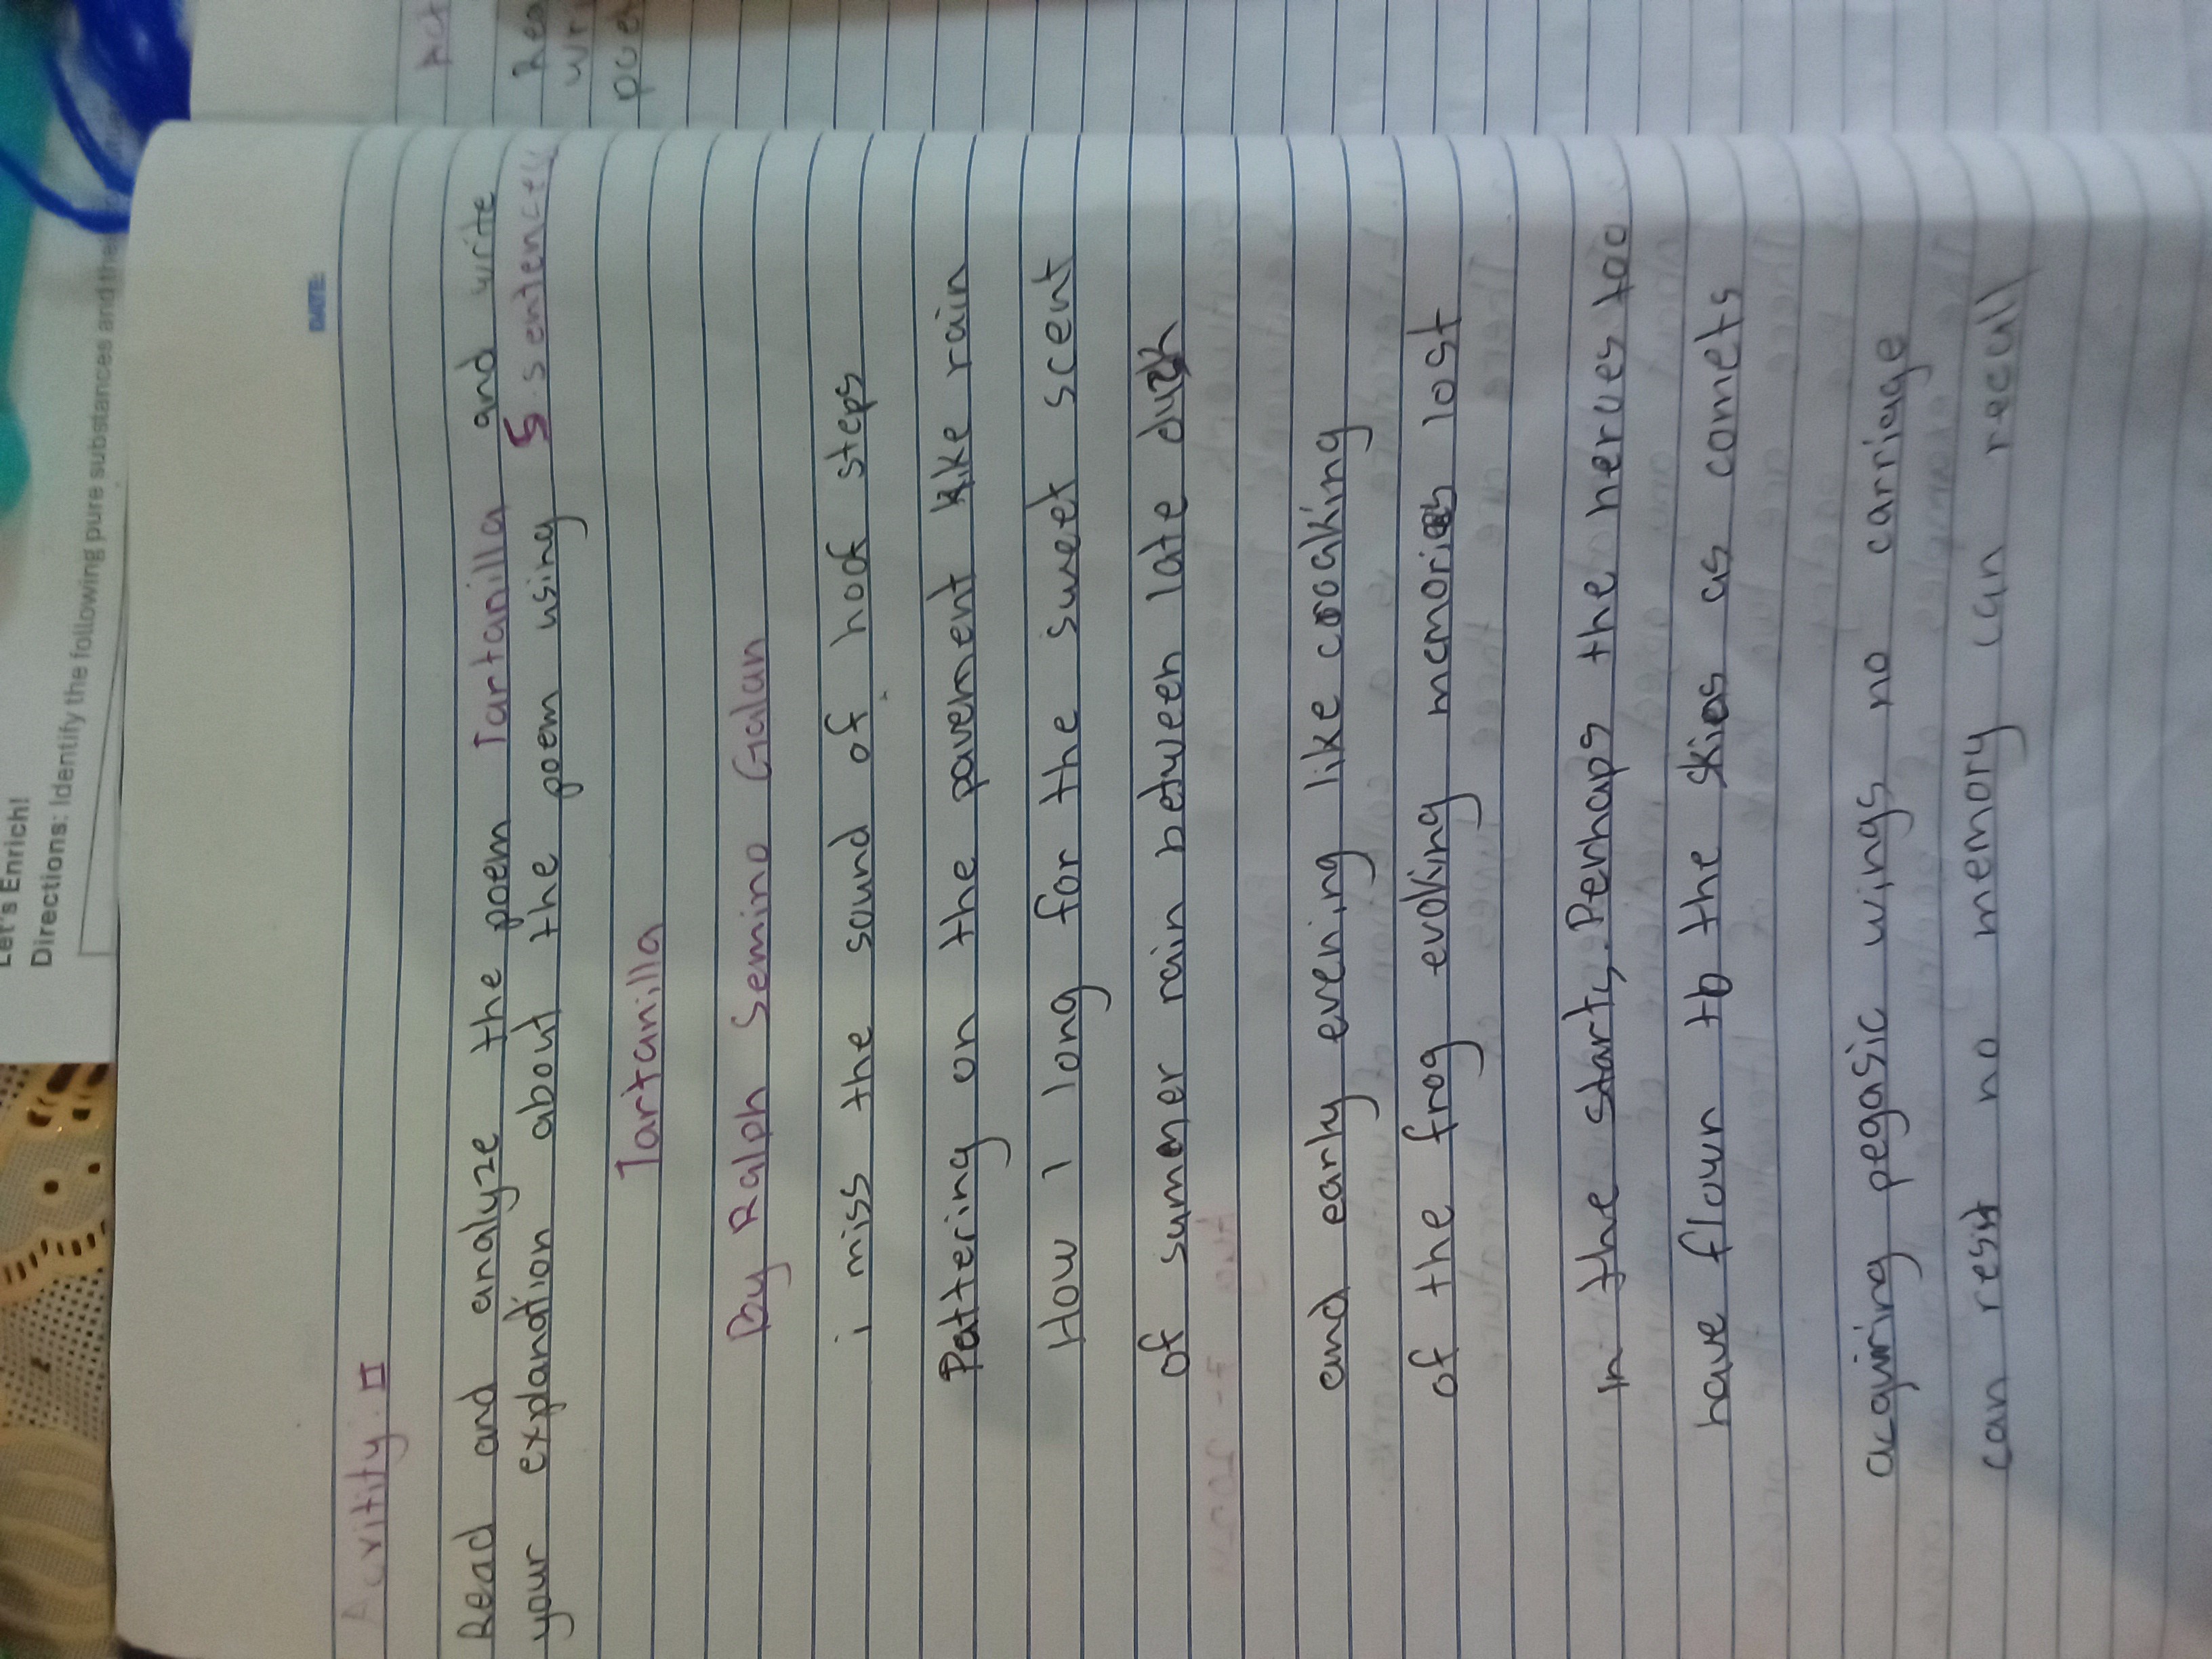 Let's Enrich!
Directions: Identify the following pure substances and the
DATE:
Acvitity. II
Read and analyze the poem Tartanilla and write
your explandion about the poem using 5 sentences
Tartanilla
By Ralph Semino Galan
i miss the sound of hoof steps
Pattering on the pavement like rain
How I long for the sweet scent
of summer rain between late dusk
and early evening like croaking
of the frog evoking memories lost
In the starts, Perhaps the heroes too
have flown to the skies as comets
acquiring pegasic wings no carriage
can resist no memory can recall
Act
Rea
wri
poe